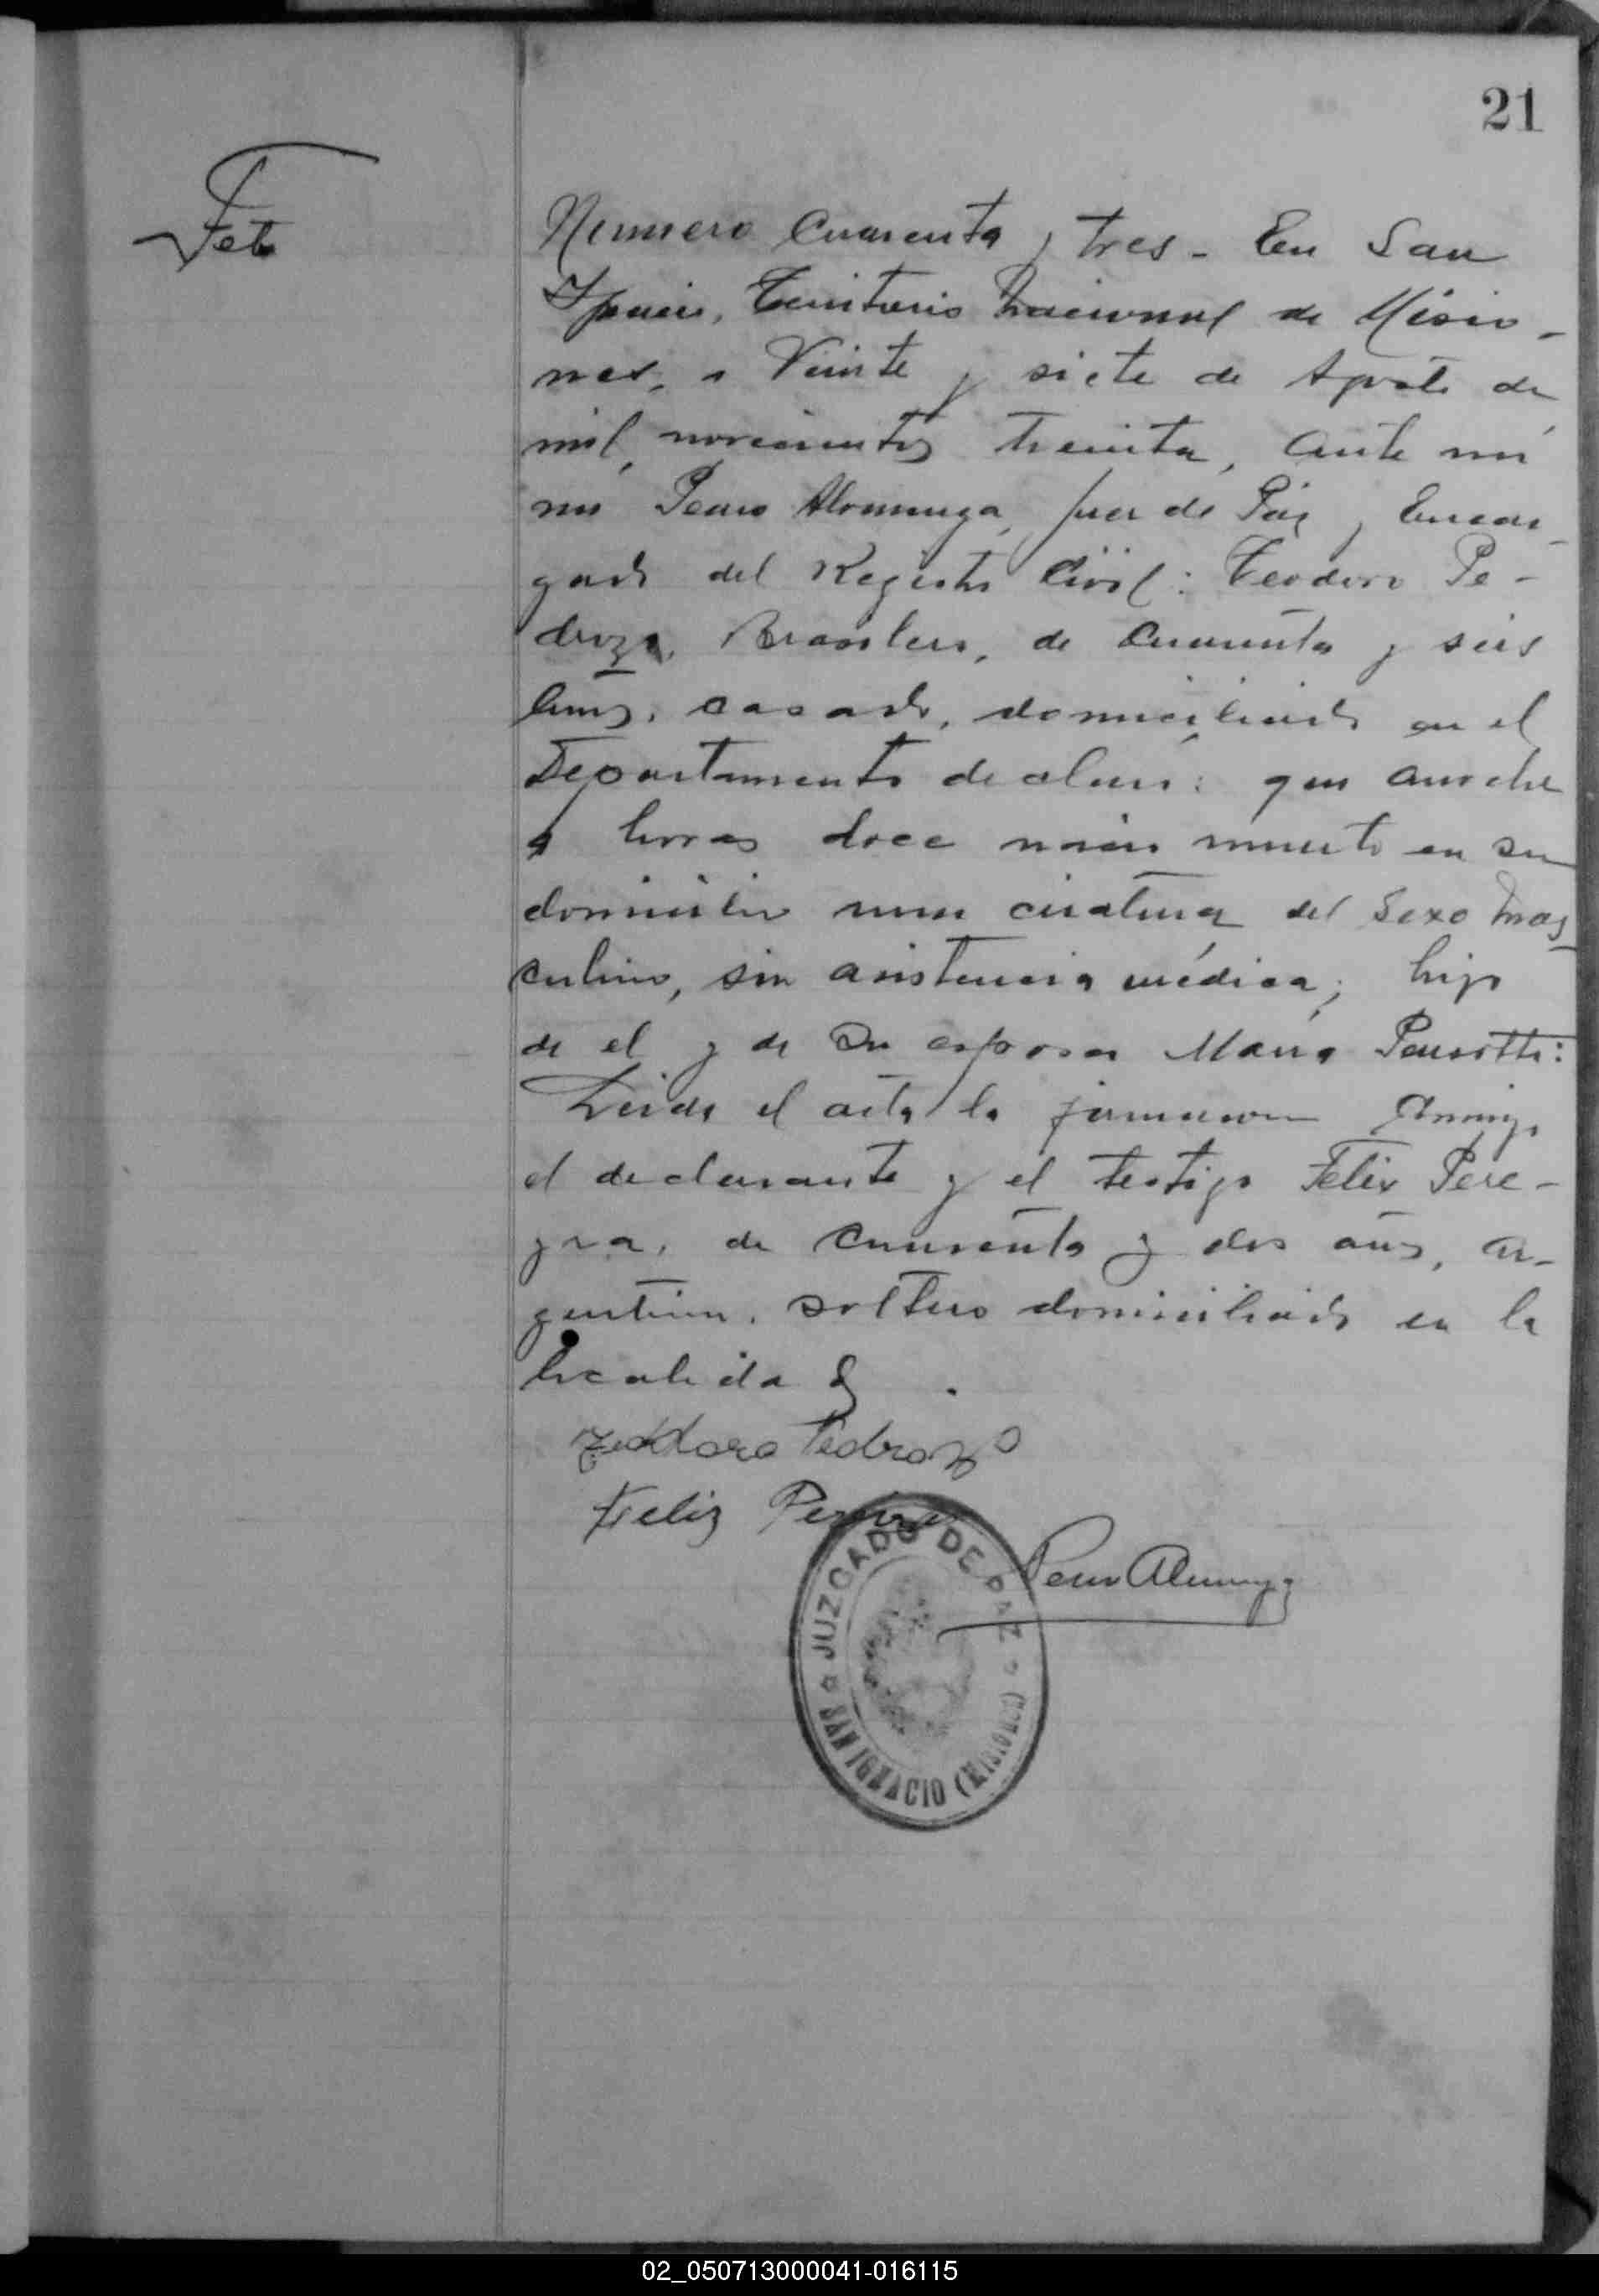 21
Feto
Numero Cuarenta y tres - En San
Ignacio, Territorio Nacional de Misio-
nes, a Veinte y siete de Agosto de
mil novecientos treinta, ante mi
mi Pedro Alvarenga, Juez de Paz y Encar-
gado del Registro Civil: Teodoro Pe-
drozo, Brasilero, de Cuarenta y seis
años, casado, domiciliado en el
Departamento declaró: que anoche
a horas doce nació muerto en su
domicilio una criatura del Sexo mas
culino, sin asistencia médica; hijo
de el y de su esposa María
Leida el acta la firmaron conmigo
el declarante y el testigo Felix Pere-
yra, de cuarenta y dos años, ar-
gentino, soltero domiciliado en la
localidad.
Teodoro Pedrozo
Feliz Pereira
JUZGADO DE PAZ
SAN IGNACIO (MISIONES)
02_050713000041-016115